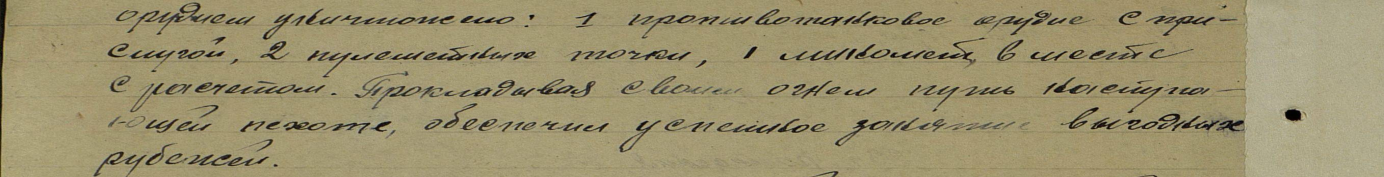 орудием уничтожено: 1 противотанковое орудие с при-
слугой, 2 пулеметных точки, 1 миномет, в месте
с расчетом. Прокладывая своим огнем путь наступа-
ющей пехоте, обеспечил успешное занятие выгодных
рубежей.